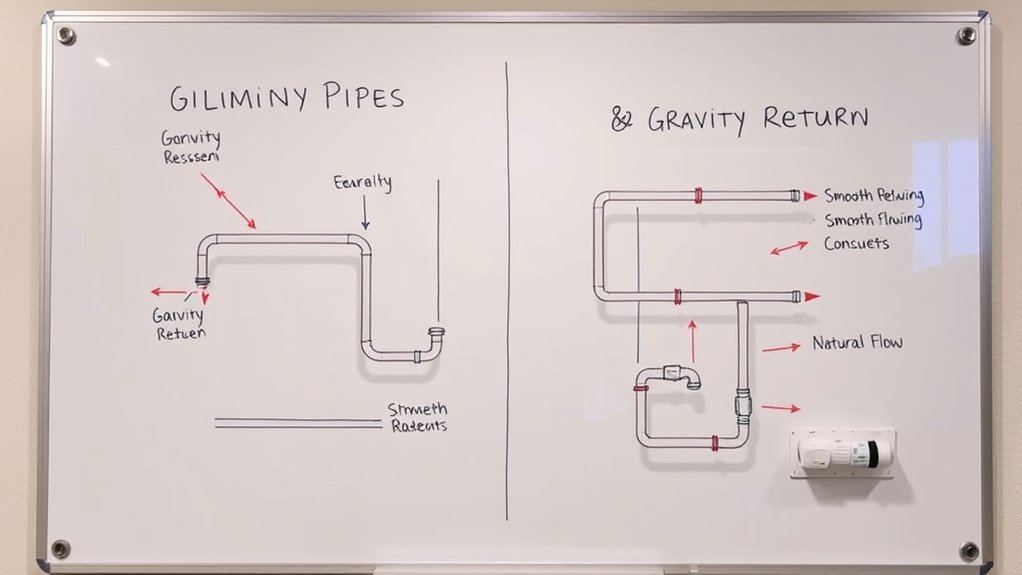 GILIMINY PIPES
Gonvity
Resssen
Eeuralty
Garvity
Retuen
Stmneth
Radents
& GRAVITY RETURN
Smooth
Smosth
Consuets
Natural Flow